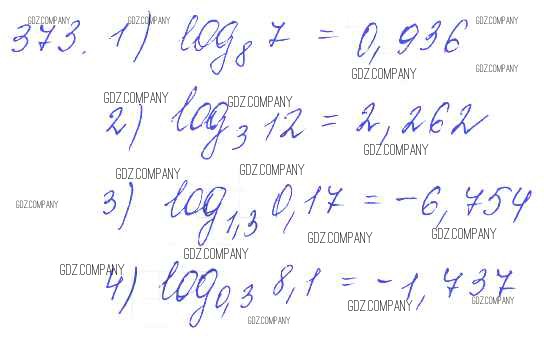 GDZ.COMPANY GDZ.COMPANY GDZ.COMPANY
373. 1) log₈ 7 = 0,936
GDZ.COMPANY GDZ.COMPANY
GDZ.COMPANY GDZ.COMPANY
2) log₃ 12 = 2,262
GDZ.COMPANY
GDZ.COMPANY GDZ.COMPANY
GDZ.COMPANY
3) log₁,₃ 0,17 = -6,754
GDZ.COMPANY GDZ.COMPANY
GDZ.COMPANY
GDZ.COMPANY
4) log₀,₃ 8,1 = -1,737
GDZ.COMPANY GDZ.COMPANY
GDZ.COMPANY